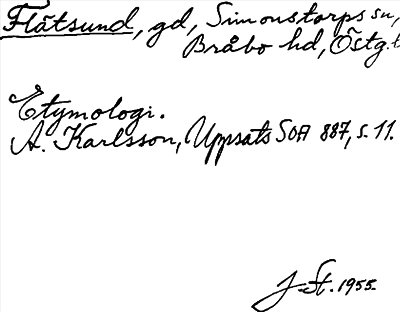 Flåtsund, gd, Simonstorps sn,
Bråbo hd, Östg.
Etymologi.
A. Karlsson, Uppsats SOA 887, s. 11.
J. St. 1955.